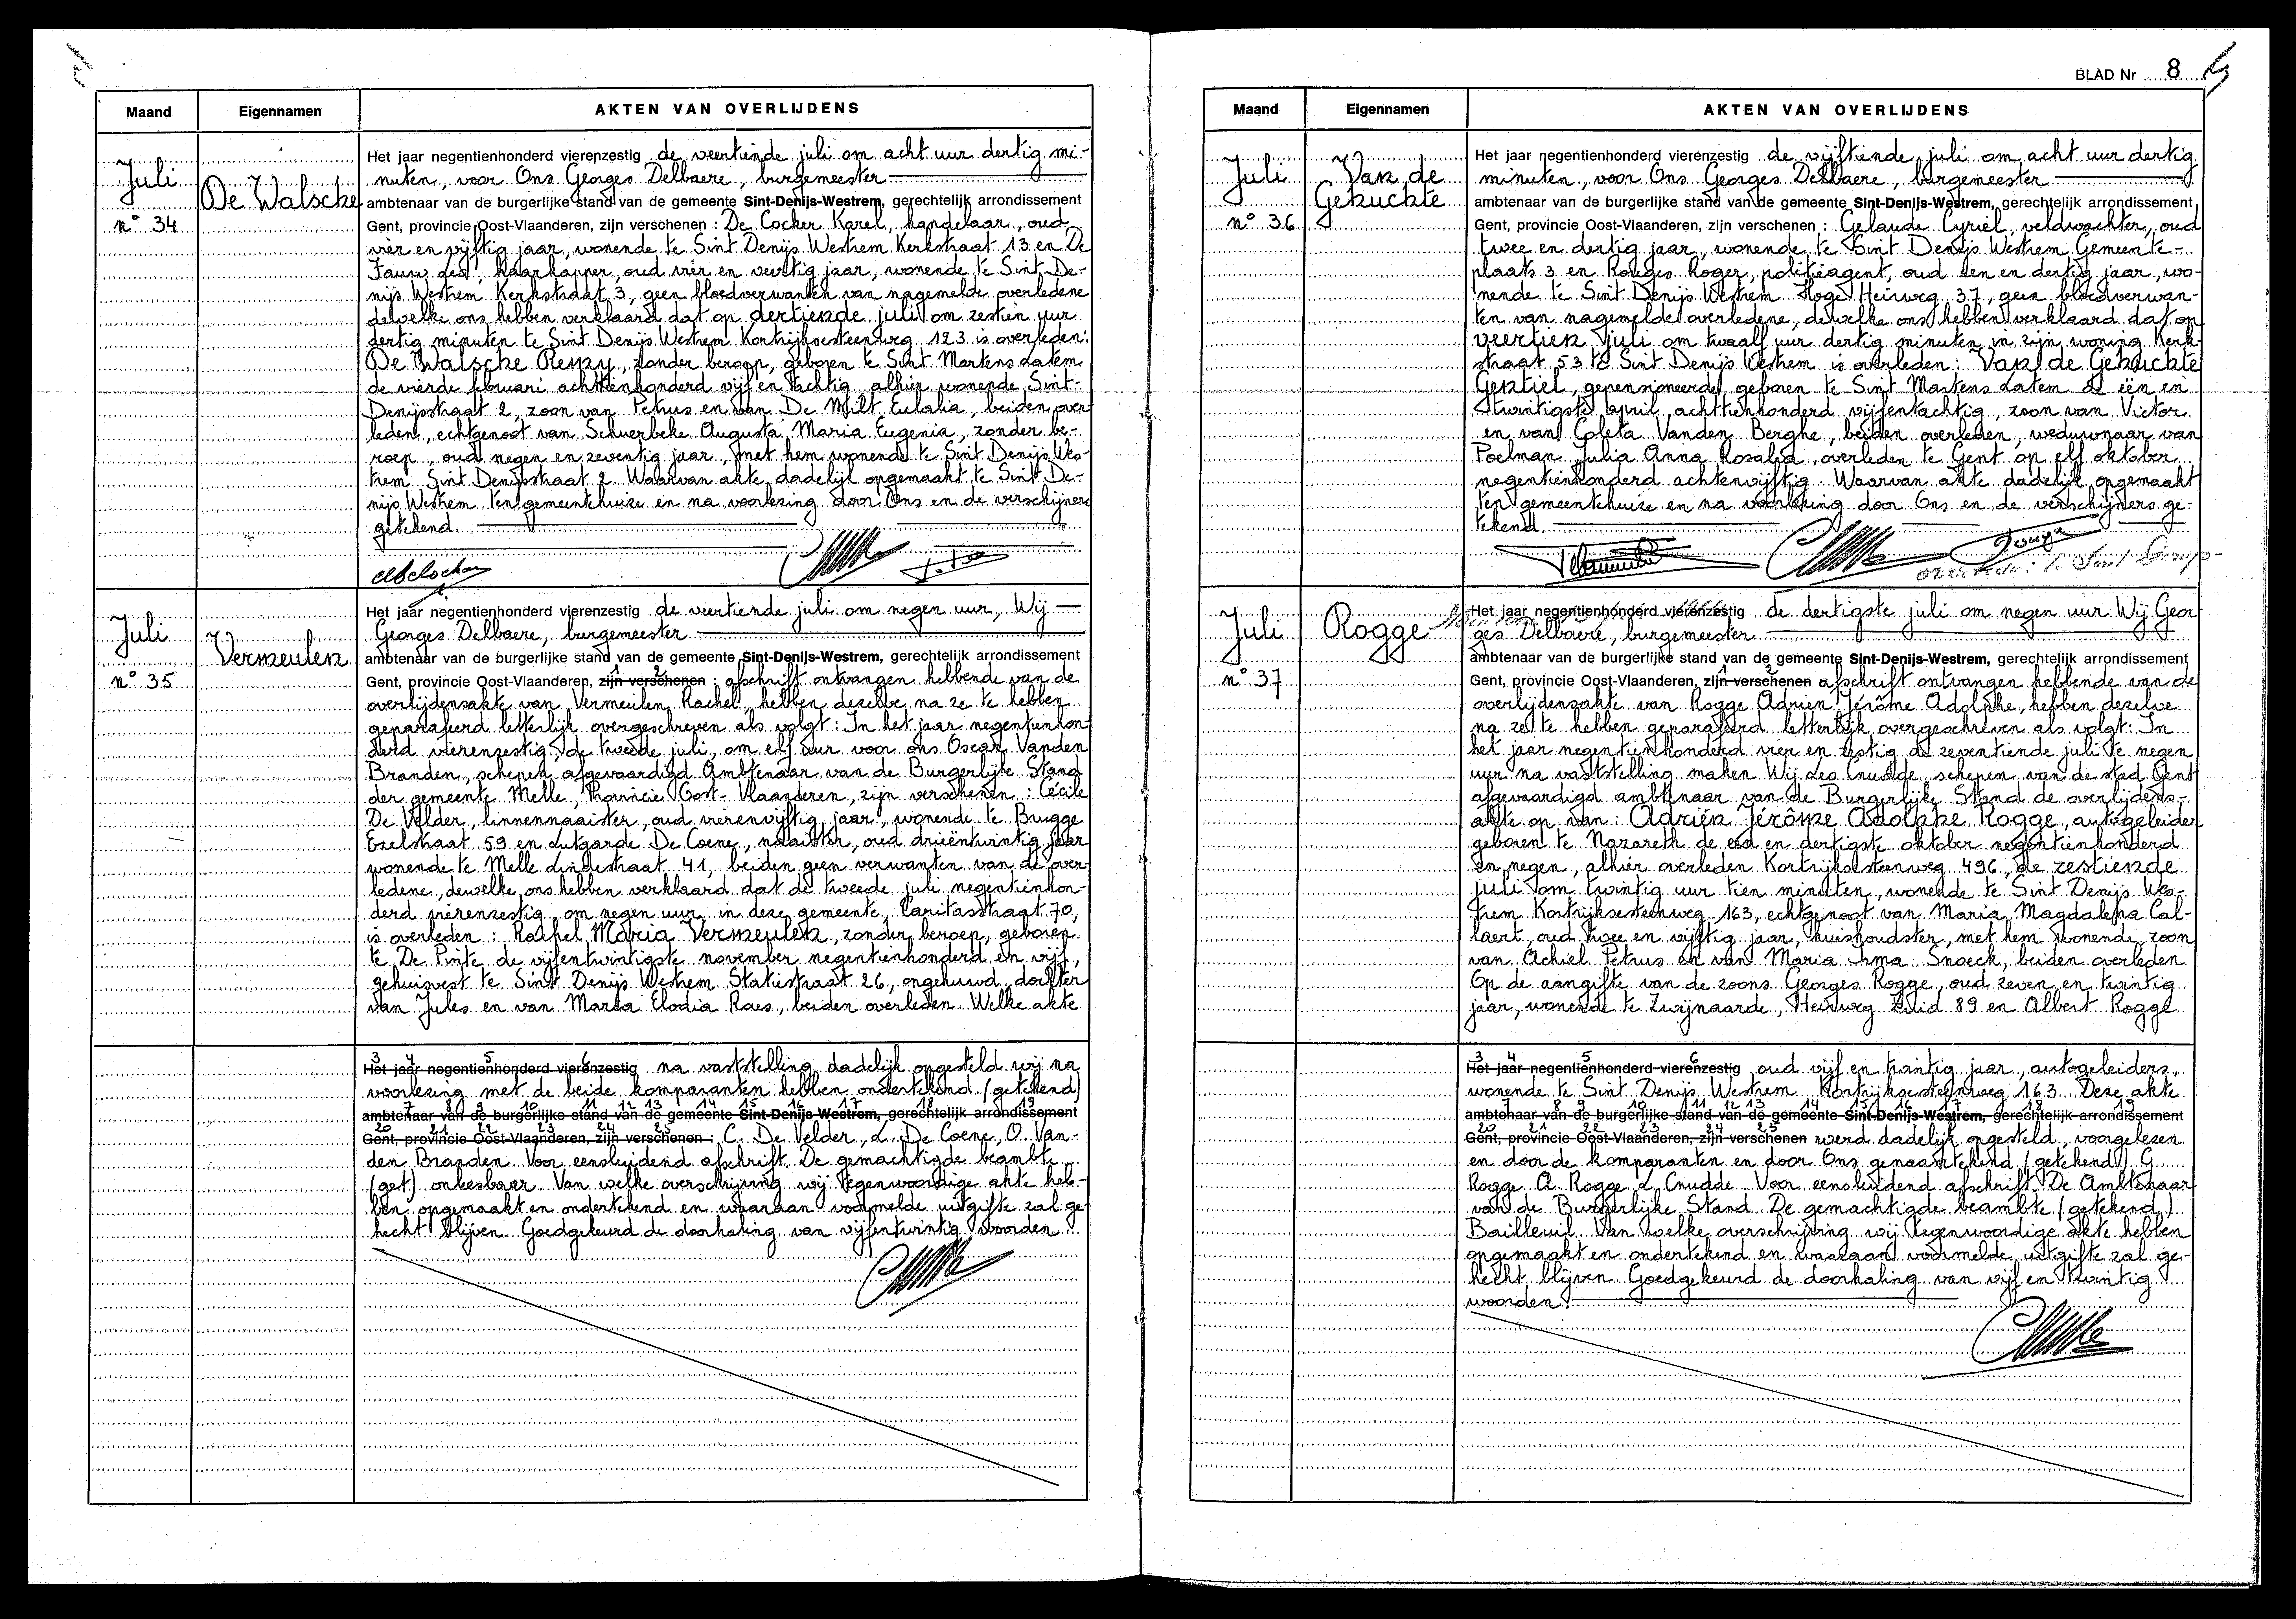 Maand Eigennamen AKTEN VAN OVERLIJDENS
Juli
De Walsche
n° 34
Het jaar negentienhonderd vierenzestig de veertiende juli om acht uur dertig mi-
nuten, voor Ons Georges Delbaere, burgemeester
ambtenaar van de burgerlijke stand van de gemeente Sint-Denijs-Westrem, gerechtelijk arrondissement
Gent, provincie Oost-Vlaanderen, zijn verschenen : De Cocker Karel, handelaar, oud
vier en vijftig jaar, wonende te Sint Denijs Westrem Kerkstraat 13 en De
Fauw haarkapper, oud vier en veertig jaar, wonende te Sint De-
nijs Westrem Kerkstraat 3, geen bloedverwanten van nagemelde overledene
dewelke ons hebben verklaard dat op dertiende juli om zestien uur
dertig minuten te Sint Denijs Westrem Kortrijksesteenweg 123 is overleden:
De Walsche Remy, zonder beroep, geboren te Sint Martens Latem
de vierde februari achttienhonderd vijf en tachtig alhier wonende Sint-
Denijsstraat 2, zoon van Petrus en van De Milt Eulalia, beiden over
leden, echtgenoot van Schuerbeke Augusta Maria Eugenia, zonder be-
roep, oud negen en zeventig jaar, met hem wonende te Sint Denijs Wes-
trem Sint Denijsstraat 2. Waarvan akte dadelijk opgemaakt te Sint De-
nijs Westrem ten gemeentehuize en na voorlezing door Ons en de verschijners
getekend.
Juli
Vermeulen
n° 35
Het jaar negentienhonderd vierenzestig de veertiende juli om negen uur, Wij
Georges Delbaere, burgemeester
ambtenaar van de burgerlijke stand van de gemeente Sint-Denijs-Westrem, gerechtelijk arrondissement
1 2
Gent, provincie Oost-Vlaanderen, zijn verschenen : afschrift ontvangen hebbende van de
overlijdensakte van Vermeulen Rachel, hebben dezelve na ze te hebben
geparafeerd letterlijk overgeschreven als volgt: In het jaar negentienhon-
derd vierenzestig, de tweede juli, om elf uur voor ons Oscar Vanden
Branden, schepen, afgevaardigd Ambtenaar van de Burgerlijke Stand
der gemeente Melle, Provincie Oost-Vlaanderen, zijn verschenen : Cécile
De Velder, linnennaaister, oud vierenvijftig jaar, wonende te Brugge
Ezelstraat 59 en Lutgarde De Coene, naaister, oud drieëntwintig jaar
wonende te Melle Lindestraat 41, beiden geen verwanten van de over
ledene, dewelke ons hebben verklaard dat de tweede juli negentienhon-
derd vierenzestig, om negen uur, in deze gemeente, Caritasstraat 70,
is overleden : Rachel Maria Vermeulen, zonder beroep, geboren
te De Pinte de vijfentwintigste november negentienhonderd en vijf,
gehuisvest te Sint Denijs Westrem Statiestraat 26, ongehuwd, dochter
van Jules en van Maria Elodia Raes, beiden overleden. Welke akte
3 4 5 6
Het jaar negentienhonderd vierenzestig na vaststelling dadelijk opgesteld wij na
voorlezing met de beide komparanten hebben ondertekend (getekend)
7 8 9 10 11 12 13 14 15 16 17 18 19
ambtenaar van de burgerlijke stand van de gemeente Sint-Denijs-Westrem, gerechtelijk arrondissement
20 21 22 23 24 25
Gent, provincie Oost-Vlaanderen, zijn verschenen : C. De Velder, L. De Coene, O. Van-
den Branden. Voor eensluidend afschrift. De gemachtigde beambte
(get.) onleesbaar. Van welke overschrijving wij tegenwoordige akte heb-
ben opgemaakt en ondertekend en waaraan voormelde uitgifte zal ge
hecht blijven. Goedgekeurd de doorhaling van vijfentwintig woorden.
BLAD Nr 8
Maand Eigennamen AKTEN VAN OVERLIJDENS
Juli
Van de
Gehuchte
n° 36
Het jaar negentienhonderd vierenzestig de vijftiende juli om acht uur dertig
minuten, voor Ons Georges Delbaere, burgemeester
ambtenaar van de burgerlijke stand van de gemeente Sint-Denijs-Westrem, gerechtelijk arrondissement
Gent, provincie Oost-Vlaanderen, zijn verschenen : Gelaude Cyriel, veldwachter, oud
twee en dertig jaar, wonende te Sint Denijs Westrem Gemeente-
plaats 3 en Rouges Roger, politieagent, oud een en dertig jaar, wo-
nende te Sint Denijs Westrem Hoge Heirweg 37, geen bloedverwan-
ten van nagemelde overledene, dewelke ons hebben verklaard dat op
veertien juli om twaalf uur dertig minuten in zijn woning Kerk-
straat 53 te Sint Denijs Westrem is overleden: Van de Gehuchte
Gentiel, gepensioneerde, geboren te Sint Martens Latem de één en
twintigste april achttienhonderd vijfentachtig, zoon van Victor
en van Coleta Vanden Berghe, beiden overleden, weduwnaar van
Poelman Julia Anna Rosalia, overleden te Gent op elf oktober
negentienhonderd achtenvijftig. Waarvan akte dadelijk opgemaakt
ten gemeentehuize en na voorlezing door Ons en de verschijners ge-
tekend.
Juli
Rogge
n° 37
Het jaar negentienhonderd vierenzestig de dertigste juli om negen uur Wij Geor
ges Delbaere, burgemeester
ambtenaar van de burgerlijke stand van de gemeente Sint-Denijs-Westrem, gerechtelijk arrondissement
1 2
Gent, provincie Oost-Vlaanderen, zijn verschenen afschrift ontvangen hebbende van de
overlijdensakte van Rogge Adrien Jérôme Adolphe, hebben dezelve
na ze te hebben geparafeerd letterlijk overgeschreven als volgt: In
het jaar negentienhonderd vier en zestig de zeventiende juli te negen
uur na vaststelling maken Wij Leo Cnudde, schepen van de stad Gent
afgevaardigd ambtenaar van de Burgerlijke Stand de overlijdens-
akte op van : Adrien Jérôme Adolphe Rogge, autogeleider
geboren te Nazareth de een en dertigste oktober negentienhonderd
en negen, alhier overleden Kortrijksesteenweg 496, de zestiende
juli om twintig uur tien minuten, wonende te Sint Denijs Wes-
trem Kortrijksesteenweg 163, echtgenoot van Maria Magdalena Cal-
laert, oud twee en vijftig jaar, huishoudster, met hem wonende, zoon
van Achiel Petrus en van Maria Irma Snoeck, beiden overleden
Op de aangifte van de zoons Georges Rogge, oud zeven en twintig
jaar, wonende te Zwijnaarde, Heirweg Zuid 89 en Albert Rogge
3 4 5 6
Het jaar negentienhonderd vierenzestig oud vijf en twintig jaar, autogeleiders,
wonende te Sint Denijs Westrem Kortrijksesteenweg 163. Deze akte
7 8 9 10 11 12 13 14 15 16 17 18 19
ambtenaar van de burgerlijke stand van de gemeente Sint-Denijs-Westrem, gerechtelijk arrondissement
20 21 22 23 24 25
Gent, provincie Oost-Vlaanderen, zijn verschenen werd dadelijk opgesteld, voorgelezen
en door de komparanten en door Ons genaamtekend (getekend) G.
Rogge A. Rogge L. Cnudde. Voor eensluidend afschrift. De Ambtenaar
van de Burgerlijke Stand De gemachtigde beambte (getekend)
Bailleuil. Van welke overschrijving wij tegenwoordige akte hebben
opgemaakt en ondertekend en waaraan voormelde uitgifte zal ge-
hecht blijven. Goedgekeurd de doorhaling van vijf en twintig
woorden.